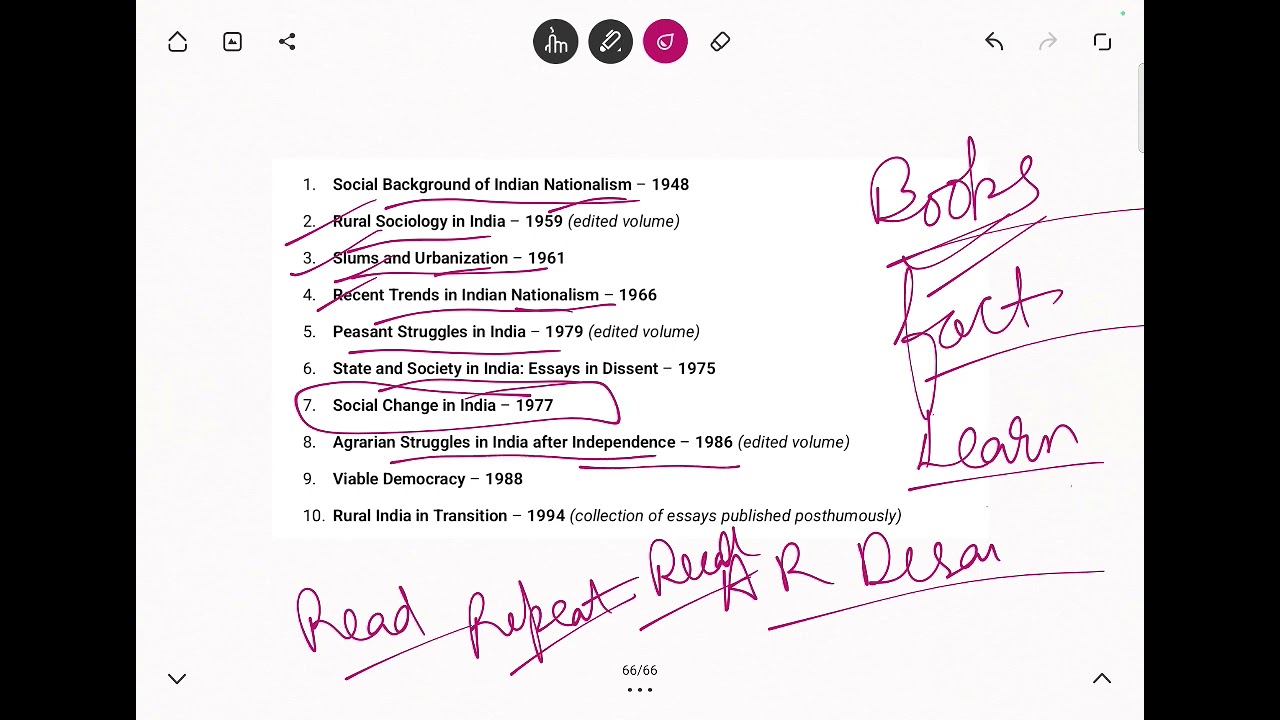 Books
1. Social Background of Indian Nationalism – 1948
2. Rural Sociology in India – 1959 (edited volume)
3. Slums and Urbanization – 1961
4. Recent Trends in Indian Nationalism – 1966
fact
5. Peasant Struggles in India – 1979 (edited volume)
6. State and Society in India: Essays in Dissent – 1975
7. Social Change in India – 1977
8. Agrarian Struggles in India after Independence – 1986 (edited volume)
Learn
9. Viable Democracy – 1988
10. Rural India in Transition – 1994 (collection of essays published posthumously)
Read Repeat Recall A R Desai
66/66